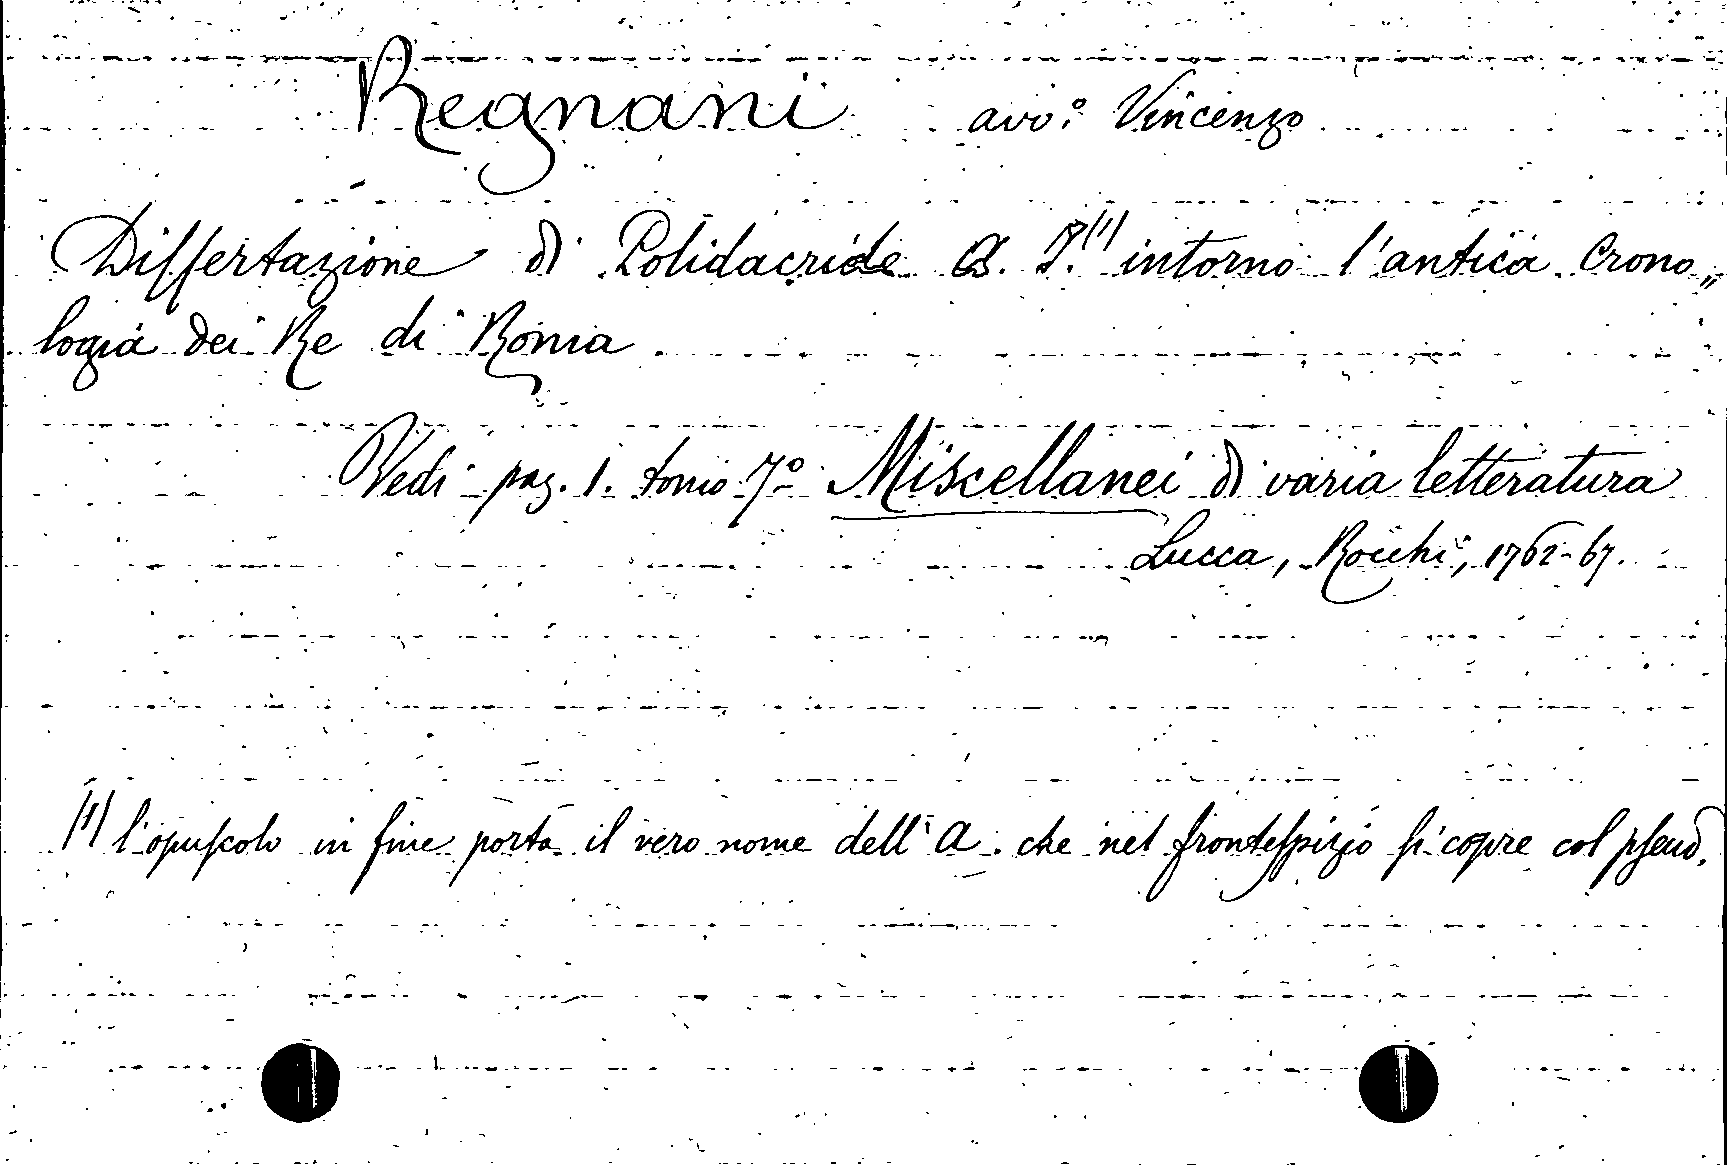 Regnani avv.º Vincenzo
Dissertazione di Polidacride A. P.(1) intorno l'antica Crono„
logia dei Re di Roma
Vedi pag. 1. tomo 7º Miscellanei di varia letteratura
Lucca, Rocchi, 1762-67.
(1) l'opuscolo in fine porta il vero nome dell'A. che nel frontespizio si copre col pseud.